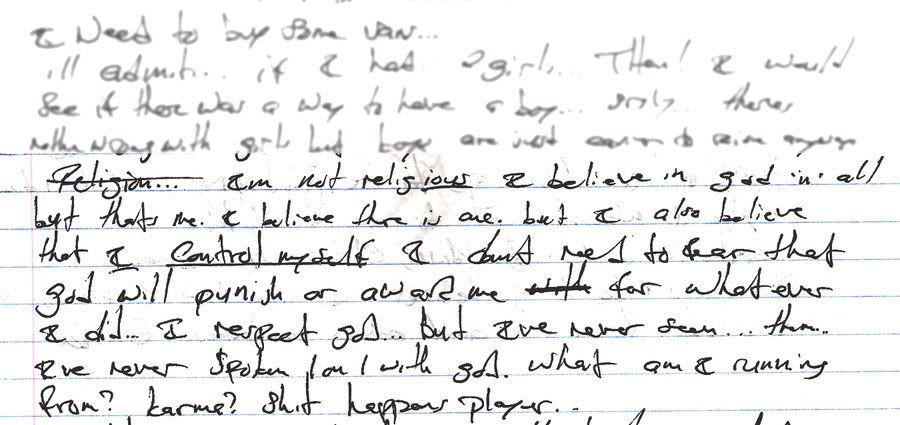 I Need to buy some van...
ill admit... if I had 2 girls. Then! I would
see if there was a way to have a boy... only theres
nothing wrong with girls but boys are just easier to raise anyways
Religion... Im not religious I believe in god in all
byt thats me. I believe there is one. but I also believe
that I Control myself I dont need to fear that
god will punish or award me with for whatever
I did... I respect god... but Ive never seen... them..
Ive never spoken 1 on 1 with god. what am I running
from? karma? shit happens player...